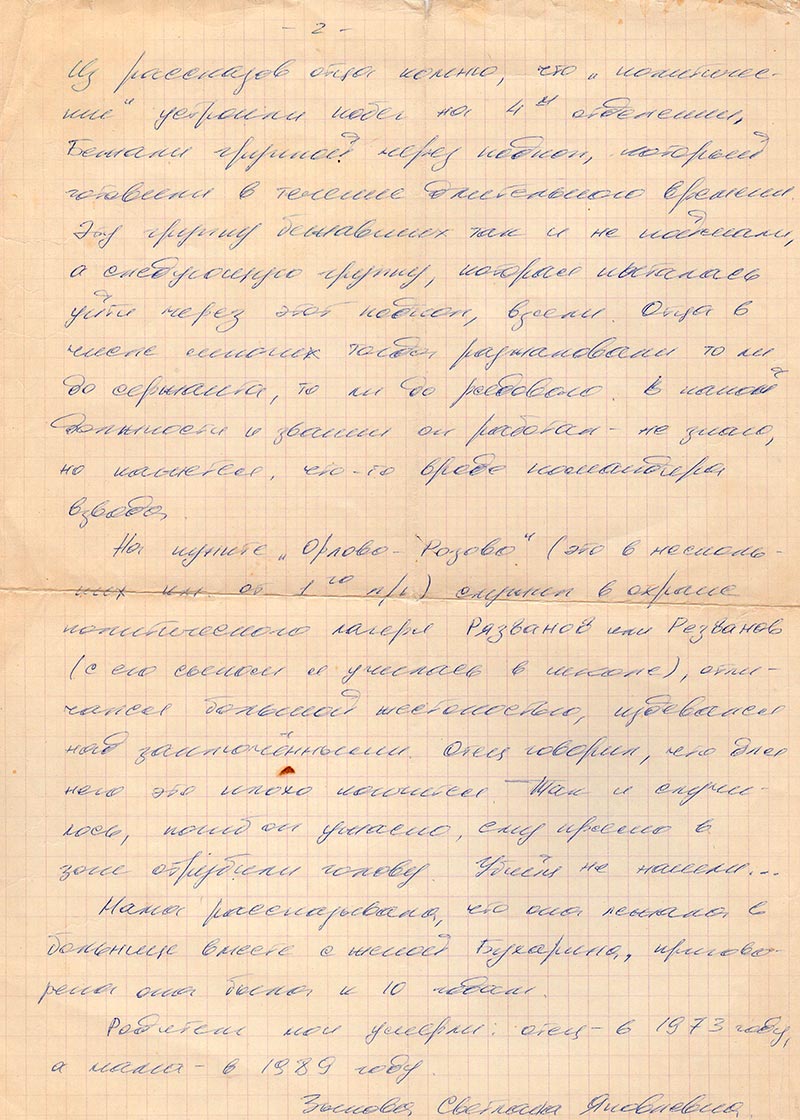 - 2 -
Из рассказов отца помню, что „политичес-
кие" устроили побег на 4м отделении,
Бежали группой через подкоп, который
готовили в течение длительного времени.
Эту группу бежавших так и не поймали,
а следующую группу, которая пыталась
уйти через этот подкоп, взяли. Отца в
числе многих тогда разжаловали то ли
до сержанта, то ли до рядового. В какой
должности и звании он работал - не знаю,
но кажется, что-то вроде командира
взвода.
На пункте „Орлово-Розово" (это в несколь-
ких км. от 1го л/п) служил в охране
политического лагеря Рязванов или Резванов
(с его сыном я училась в школе), отли-
чался большой жестокостью, издевался
над заключёнными. Отец говорил, что для
него это плохо кончится. Так и случи-
лось, погиб он ужасно, ему прямо в
зоне отрубили голову. Убийц не нашли...
Мама рассказывала, что она лежала в
больнице вместе с женой Бухарина, пригово-
рена она была к 10 годам.
Родители мои умерли: отец - в 1973 году,
а мама - в 1989 году.
Зыкова Светлана Яковлевна.